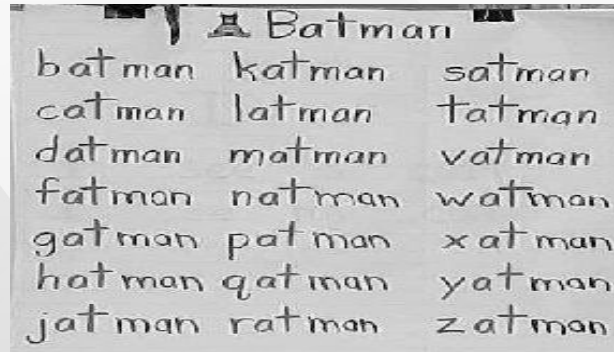 Batman
batman katman satman
catman latman tatman
datman matman vatman
fatman natman watman
gatman patman xatman
hatman qatman yatman
jatman ratman zatman